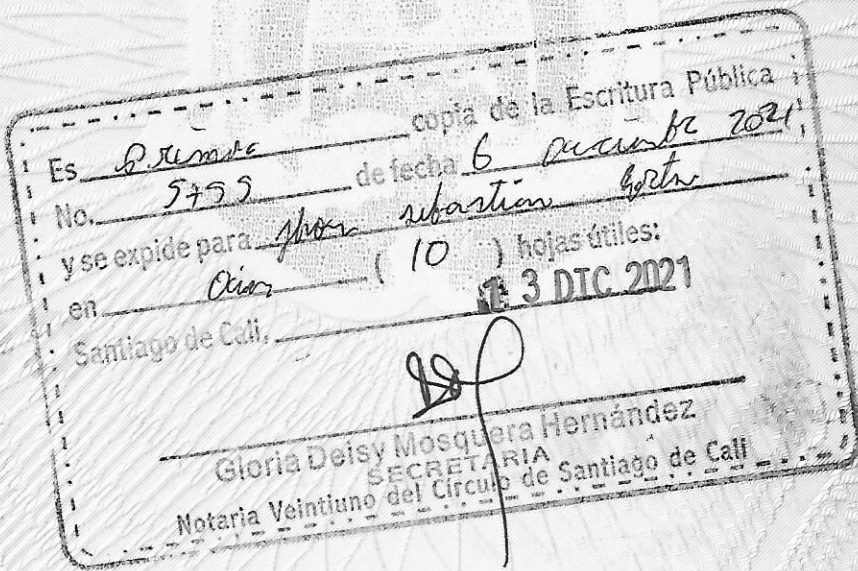 Es Primera copia de la Escritura Pública
No. 5799 de fecha 6 diciembre 2021
y se expide para Jhon sebastian
en Diez ( 10 ) hojas útiles:
Santiago de Cali, 13 DIC 2021
Gloria Deisy Mosquera Hernández
SECRETARIA
Notaria Veintiuno del Círculo de Santiago de Cali